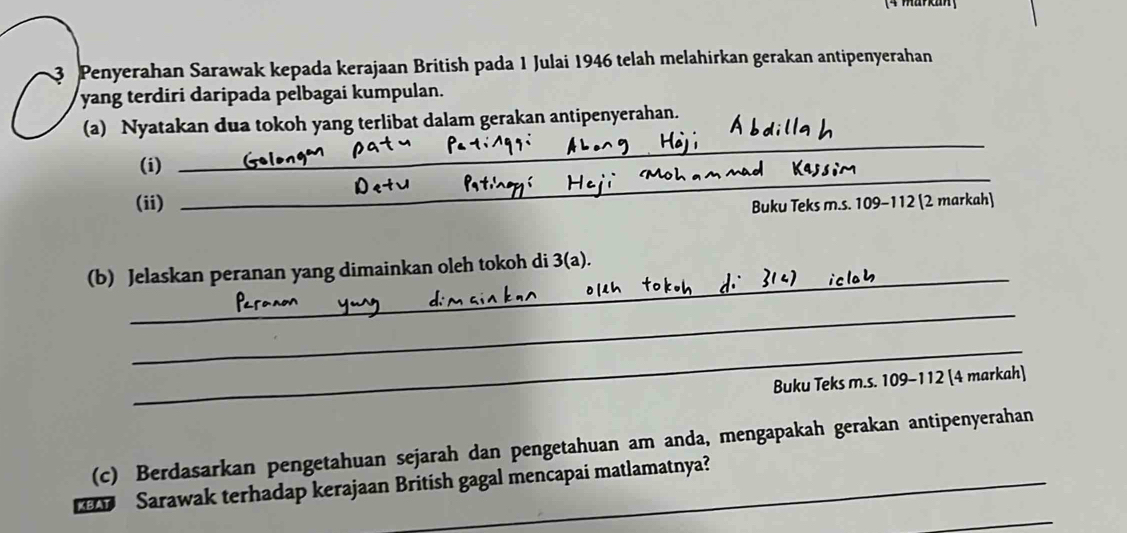 [4 markah]
3 Penyerahan Sarawak kepada kerajaan British pada 1 Julai 1946 telah melahirkan gerakan antipenyerahan
yang terdiri daripada pelbagai kumpulan.
(a) Nyatakan dua tokoh yang terlibat dalam gerakan antipenyerahan.
(i) Golongan patu Patinggi Abang Haji Abdillah
(ii) Datu Patinggi Haji Mohammad Kassim
Buku Teks m.s. 109–112 [2 markah]
(b) Jelaskan peranan yang dimainkan oleh tokoh di 3(a).
Peranan yang dimainkan oleh tokoh di 3(a) ialah
Buku Teks m.s. 109–112 [4 markah]
(c) Berdasarkan pengetahuan sejarah dan pengetahuan am anda, mengapakah gerakan antipenyerahan
KBAT Sarawak terhadap kerajaan British gagal mencapai matlamatnya?